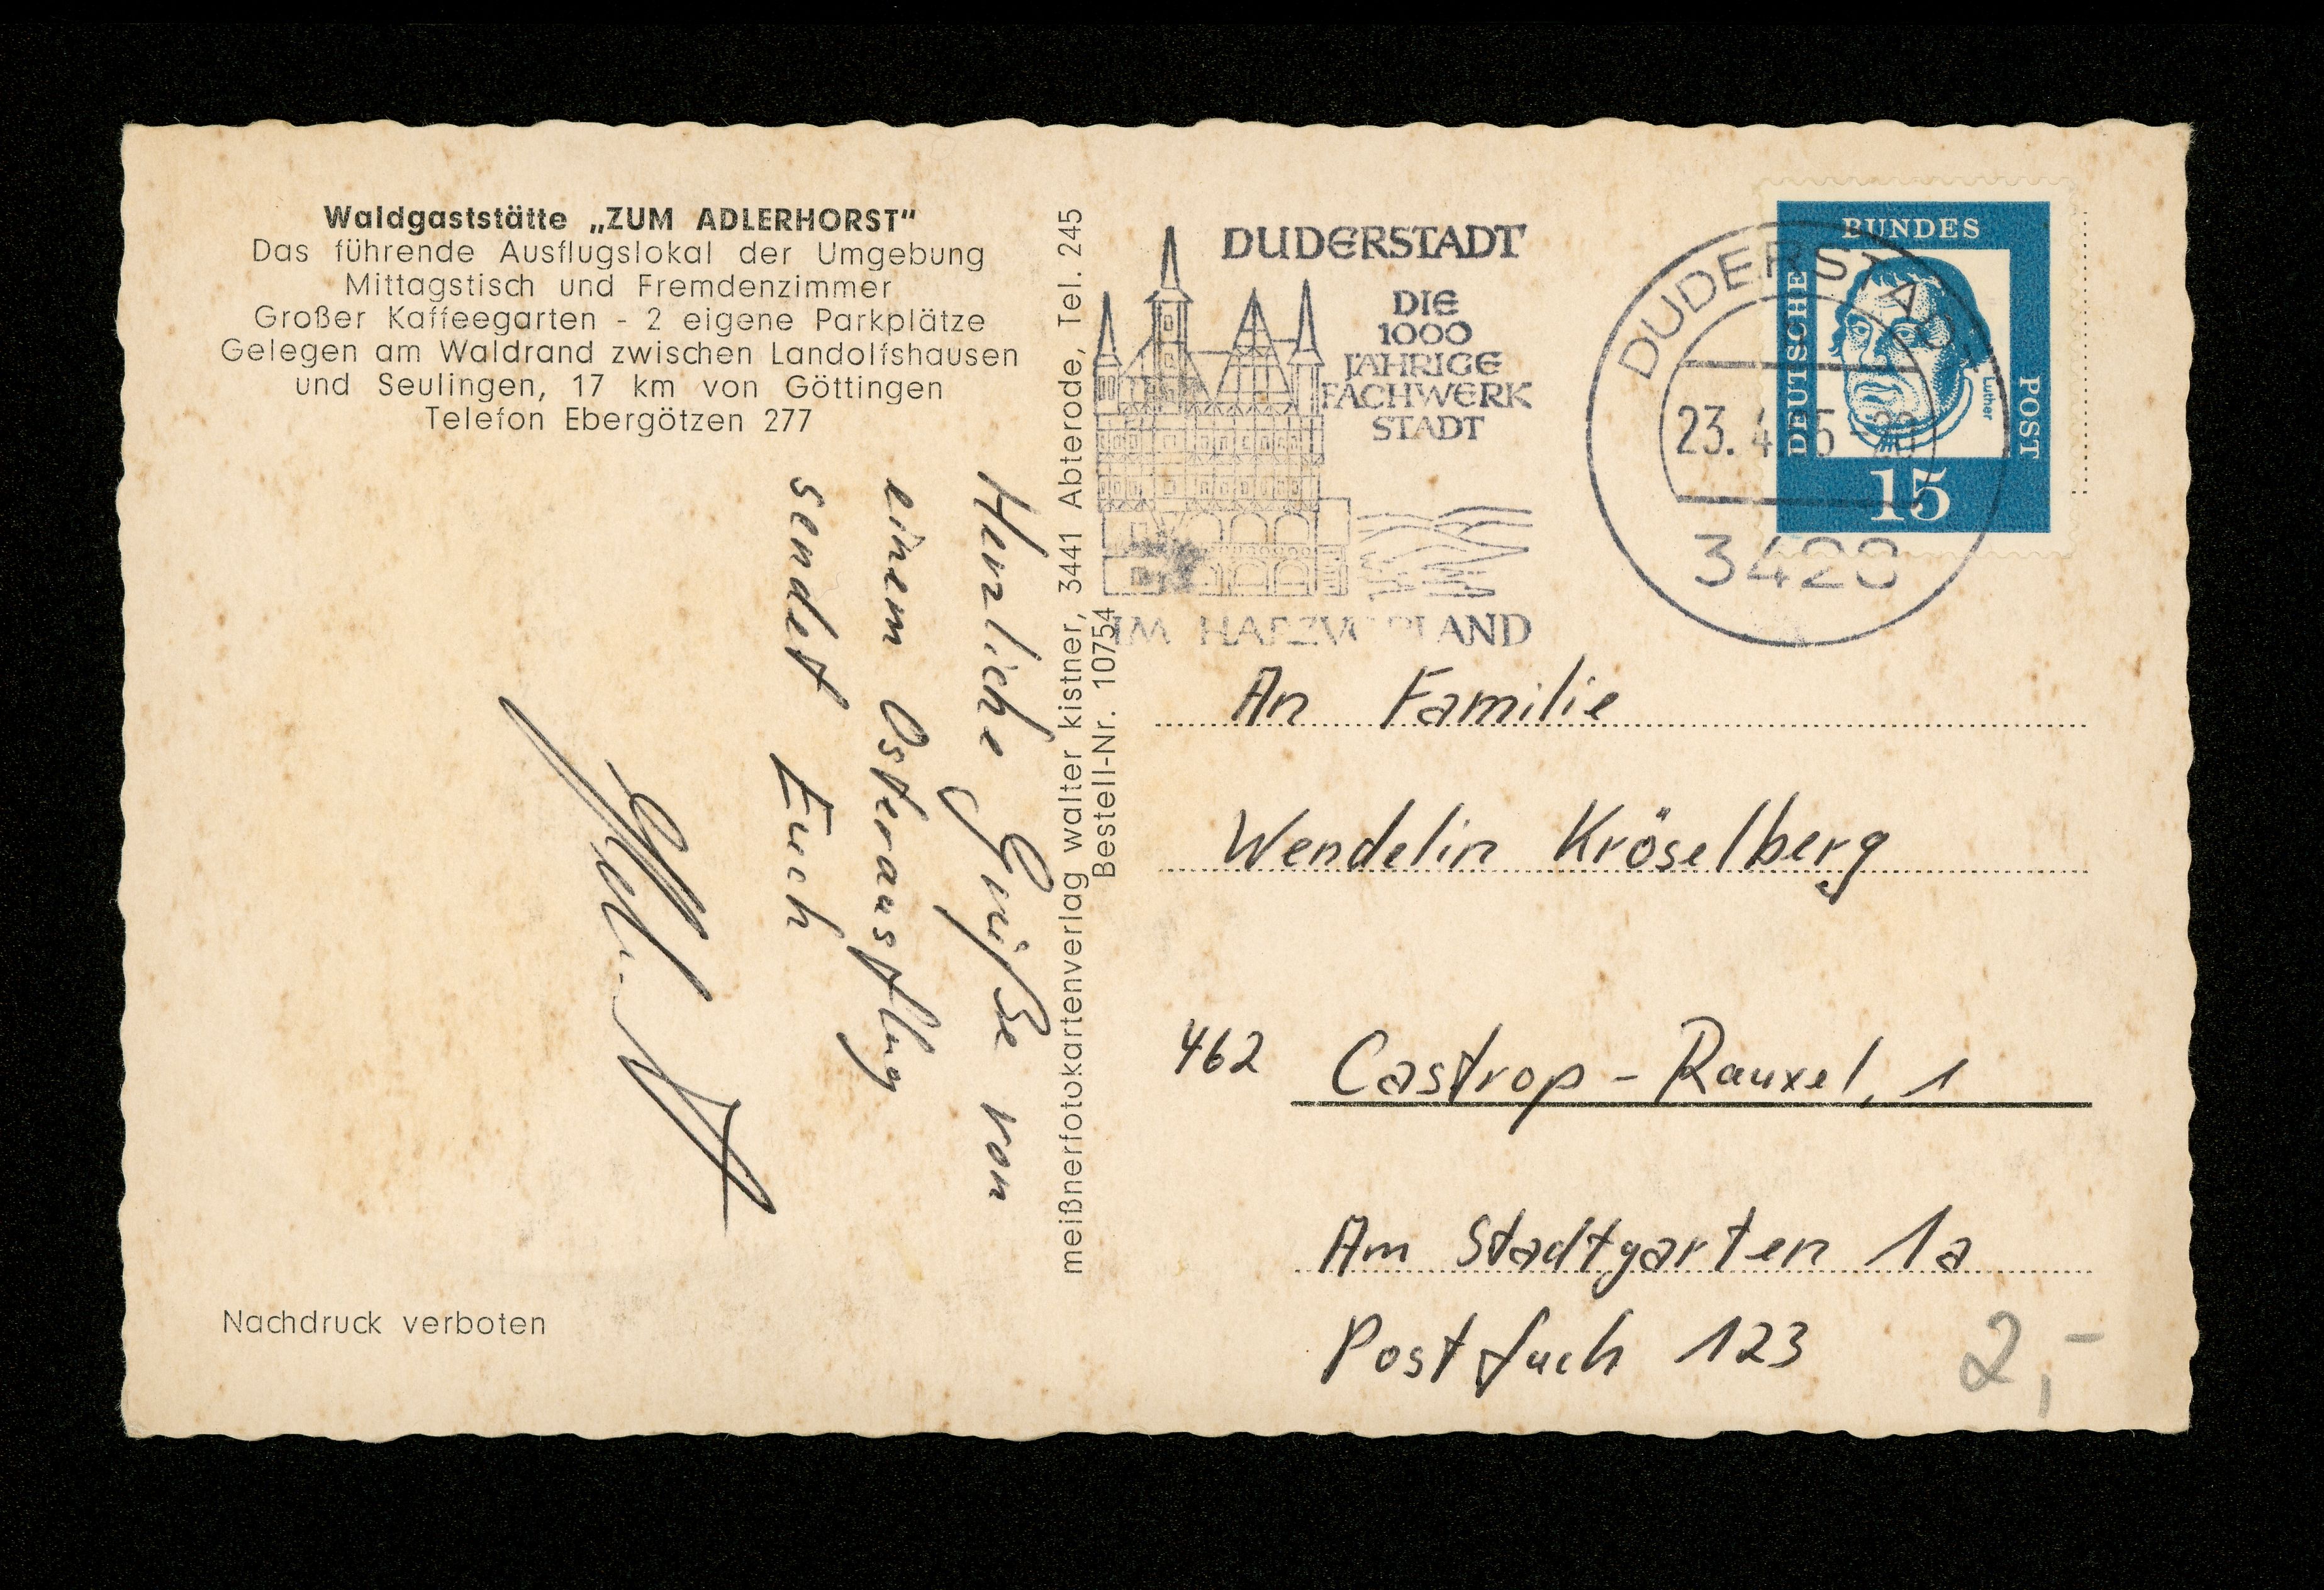 Waldgaststätte „ZUM ADLERHORST“
Das führende Ausflugslokal der Umgebung
Mittagstisch und Fremdenzimmer
Großer Kaffeegarten - 2 eigene Parkplätze
Gelegen am Waldrand zwischen Landolfshausen
und Seulingen, 17 km von Göttingen
Telefon Ebergötzen 277
Herzliche Grüße von
einem Osterausflug
sendet Euch
Nachdruck verboten
meißnerfotokartenverlag walter kistner, 3441 Abterode, Tel. 245
Bestell-Nr. 10754
DUDERSTADT
DIE
1000
JÄHRIGE
FACHWERK
STADT
IM HARZVORLAND
DUDERSTADT
23. 4
3428
BUNDES
DEUTSCHE
POST
Luther
15
An Familie
Wendelin Kröselberg
462 Castrop-Rauxel, 1
Am Stadtgarten 1a
Postfach 123
2,-